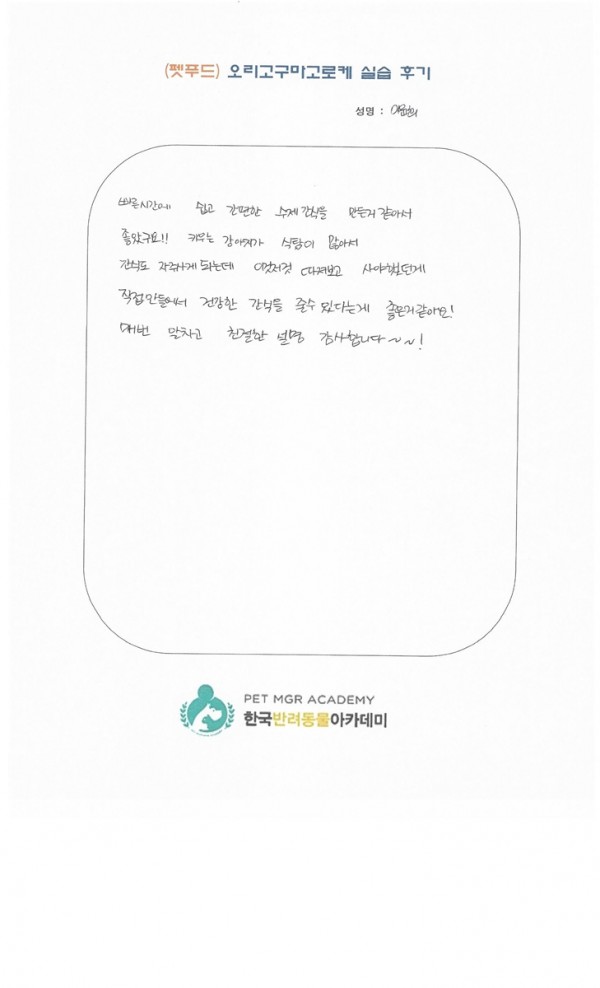 (펫푸드) 오리고구마고로케 실습 후기
성명 :
빠른시간에 쉽고 간편한 수제간식을 만든거 같아서
좋았구요!! 키우는 강아지가 식탐이 많아서
간식도 자주사게 되는데 이것저것 따져보고 사야했던게
직접만들어서 건강한 간식을 줄수 있다는게 좋은거같아요!
매번 알차고 친절한 설명 감사합니다~~!
PET MGR ACADEMY
한국반려동물아카데미